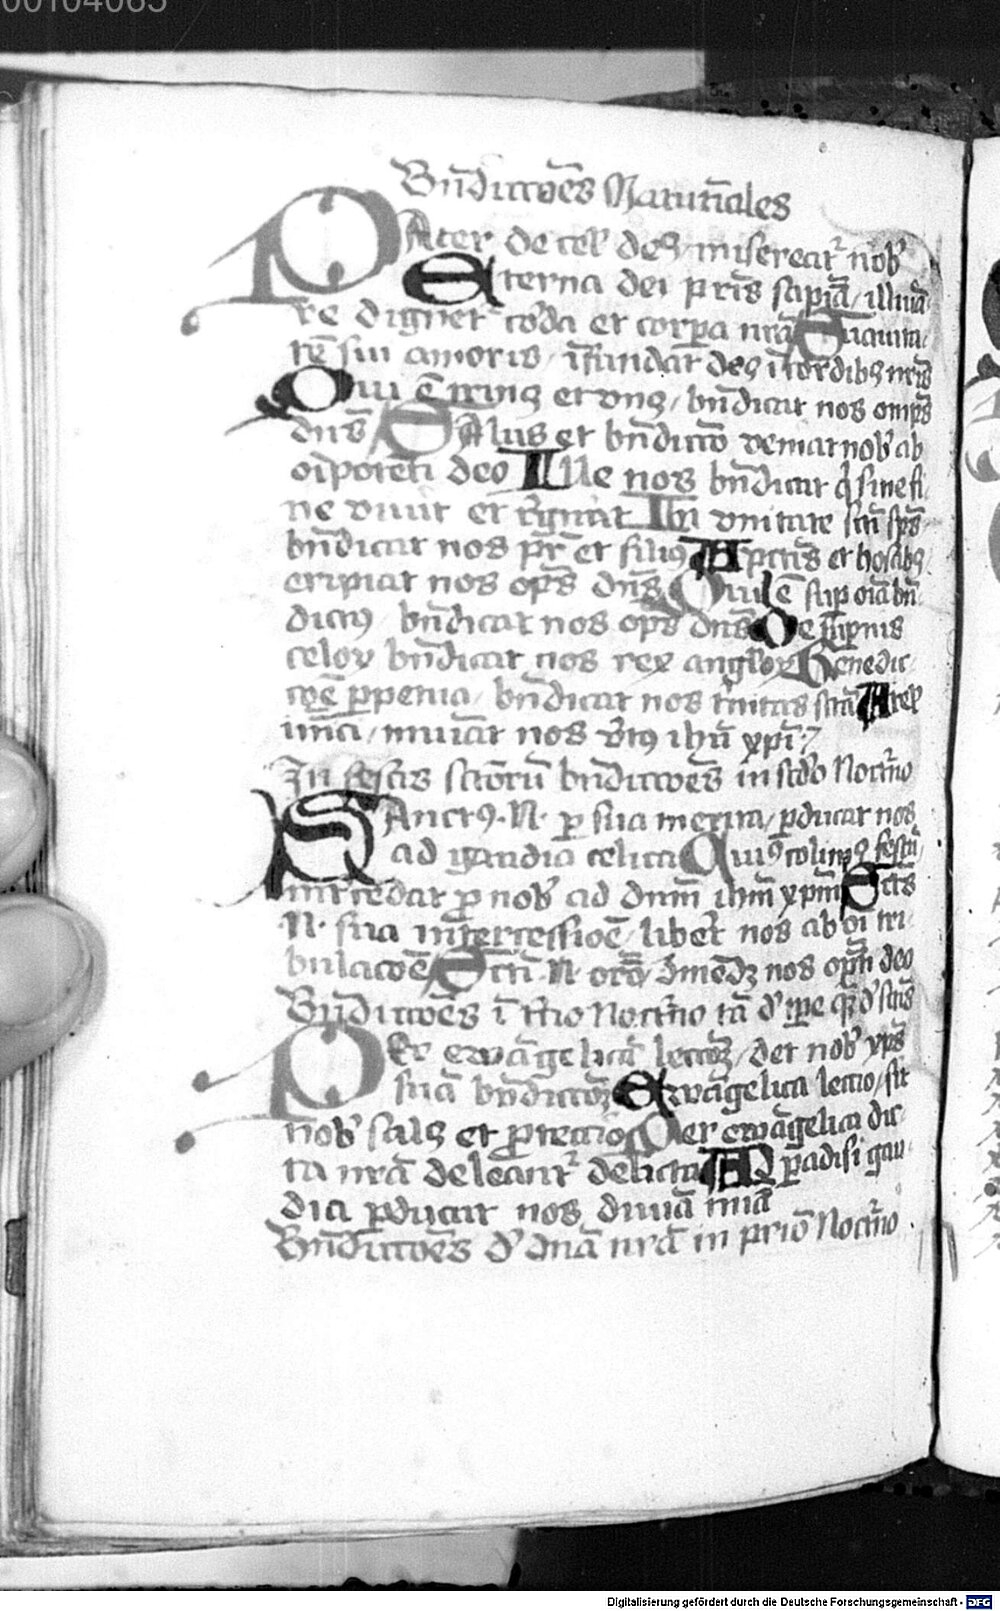 00104065
Bn̄dicc̄oēs Matutīales
PAter de cel̄ deꝰ misereat᷑ nob̄
Eterna dei pr̄is sapīa illūa
re dignet᷑ cōda et corp̄a nrā Suauita
tē sui amoris īfundat deꝰ ī cordibꝰ nr̄is
Qui ē trinꝰ et vnꝰ bn̄dicat nos omp̄s
dn̄s SAlus et bn̄dicc̄o veniat nob̄ ab
oīpotēti deo Ille nos bn̄dicat q̄ sine fi
ne viuit et r̄gnat In vnitate scī sp̄s
bn̄dicat nos pr̄ et filiꝰ A pctīs et hostibꝰ
eripiat nos op̄s dn̄s Qui ē sup oīa bn̄
dictꝰ bn̄dicat nos op̄s dn̄s De sup̄nis
celoꝝ bn̄dicat nos rex angl̄oꝝ Benedic
c̄oē p̄petua bn̄dicat nos t̄nitas sctā A rel̄
inīci muniat nos v̄tꝰ ihū xp̄i
In festis sctōrū bn̄dicc̄oēs in scd̄o Noct̄no
SAnctꝰ N p̄ sua merita p̄ducat nos
ad gaudia celica Quiꝰ colimꝰ festū
int̄cedat p̄ nob̄ ad dnm̄ ihm̄ xpm̄ Sctūs
N sua int̄cessioē lib̄et nos ab oī tri
bulac̄oē Sctī N or̄o d̄mēdꝫ nos op̄m deo
Bn̄dicc̄oēs ī t̄tio Noct̄no tā d̄ tp̄e q̄ d̄ sctīs
PEr ewāgelicā lecc̄oꝫ det nob̄ xp̄s
suā bn̄dicc̄oꝫ Ewāgelica lectio sit
nob̄ salꝰ et p̄tectio Per ewāgelica dic
ta nr̄a deleant᷑ delicta AD p̄adisi gau
dia p̄ducat nos diuīa mīa
Bn̄dicc̄oēs d̄ dn̄a nr̄a in p̄io Noct̄no
Digitalisierung gefördert durch die Deutsche Forschungsgemeinschaft - DFG